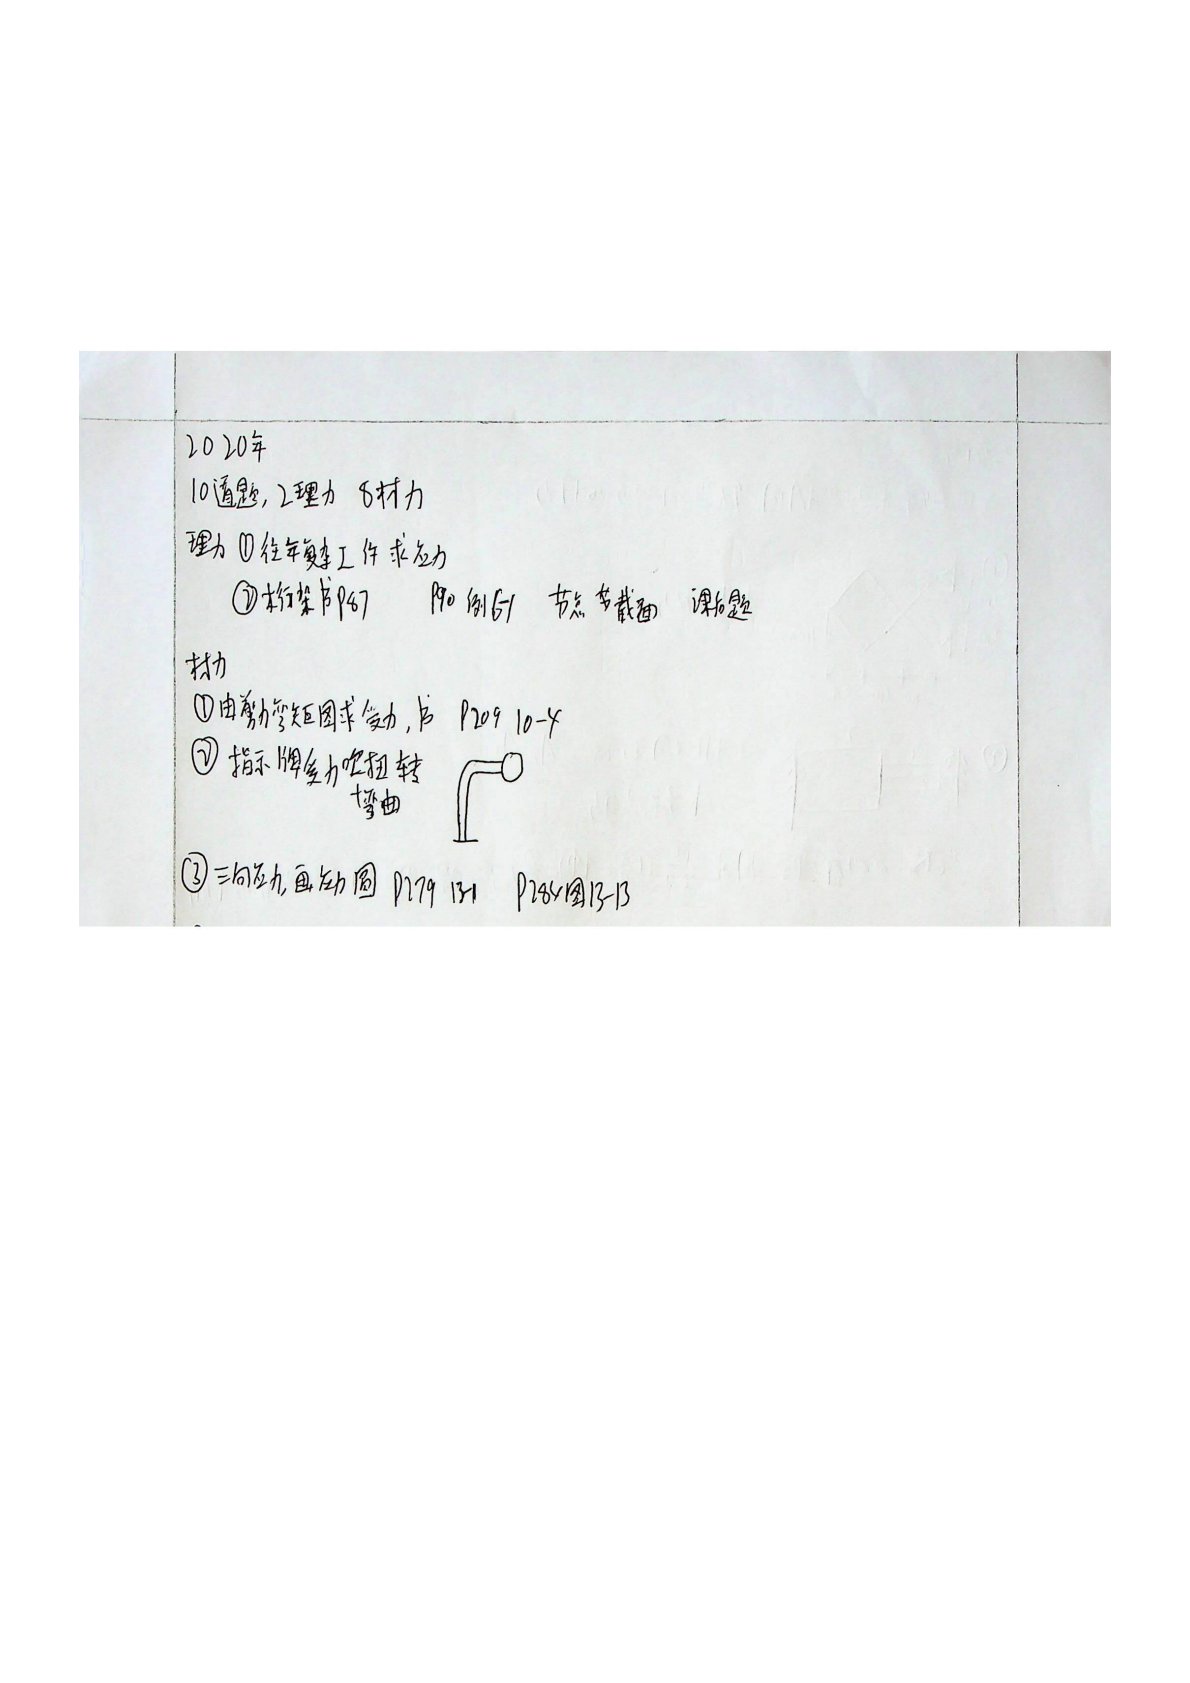 2020年
10道题,2理力 8材力
理力 ①往年复杂工件求应力
②桁架书P87 P90例6-1 节点 截面 课后题
材力
①由剪力弯矩图求受力,书 P209 10-4
②指示牌受力吹扭转
+弯曲
③三向应力,画应力圆 P279 13-1 P284图13-13